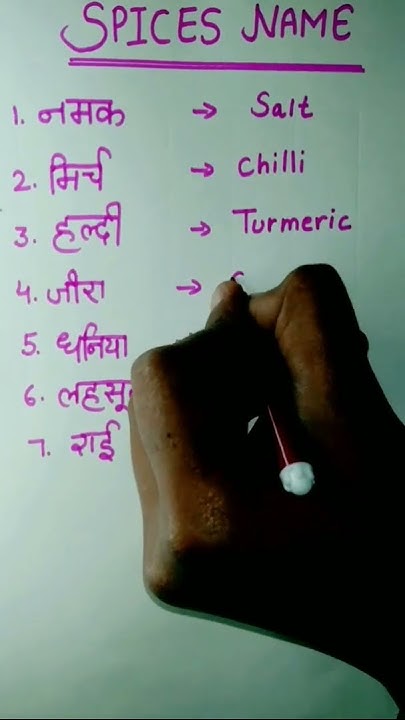 SPICES NAME
1. नमक → Salt
2. मिर्च → Chilli
3. हल्दी → Turmeric
4. जीरा →
5. धनिया
6.
7. राई